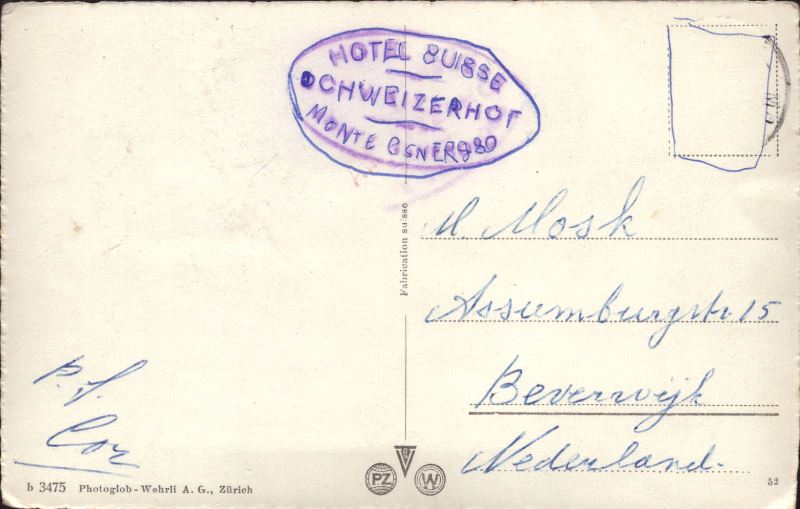 HOTEL SUISSE
SCHWEIZERHOF
MONTE
Fabrication suisse
M. Mosk
Assumburgstr 15
Beverwijk
Nederland.
p.f.
Cor
b 3475 Photoglob-Wehrli A. G., Zürich
PZ
W
52